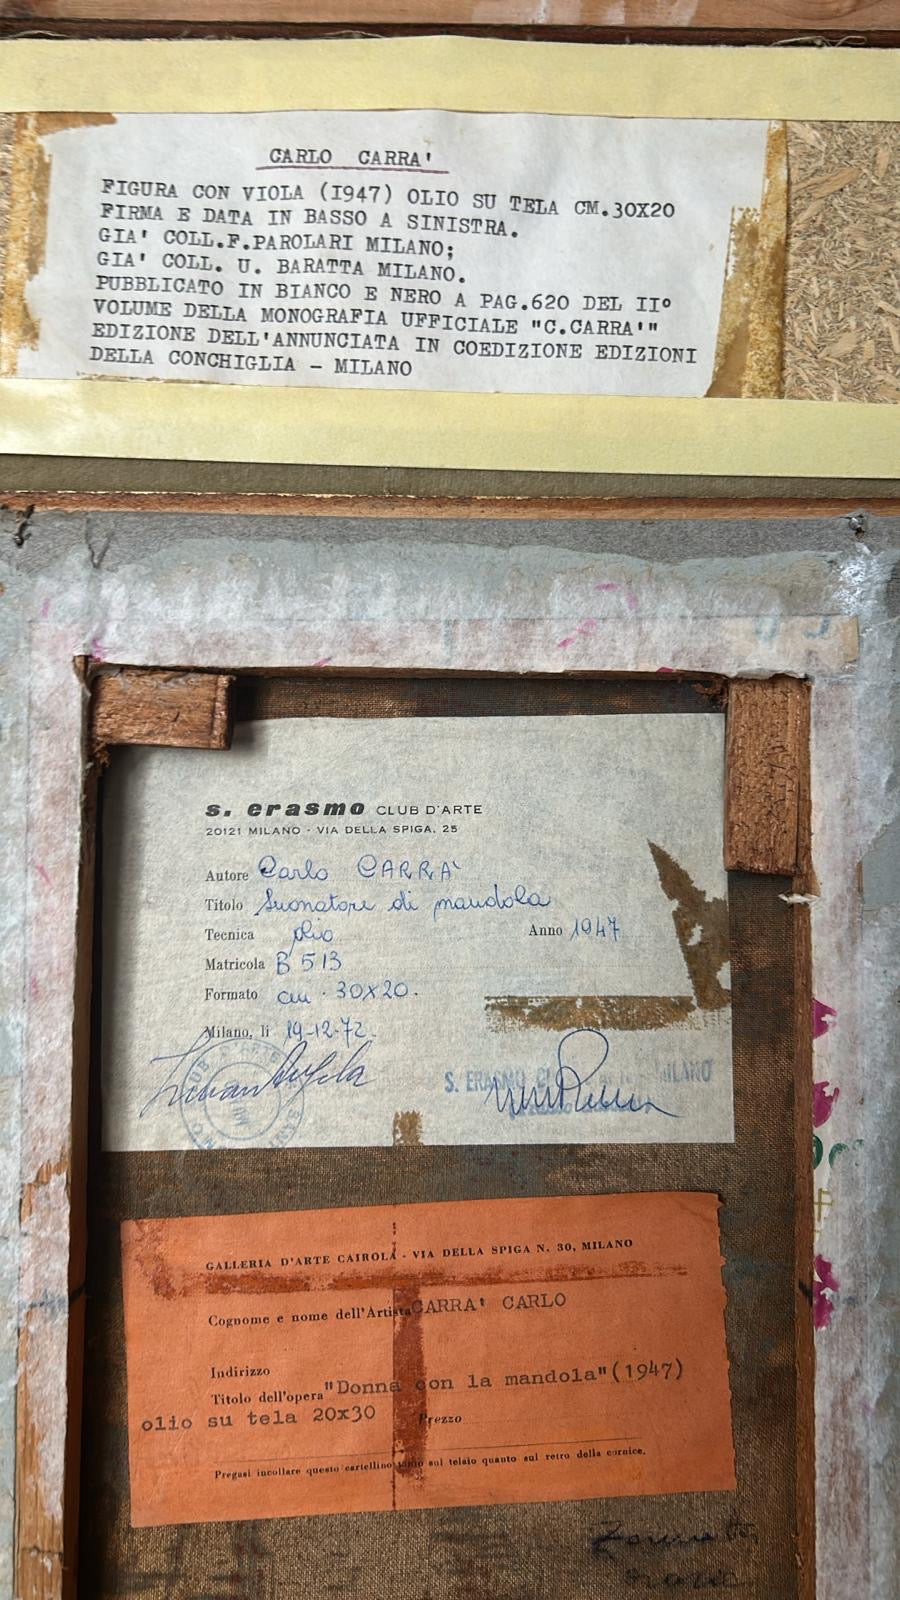 CARLO CARRA'
FIGURA CON VIOLA (1947) OLIO SU TELA CM.30X20
FIRMA E DATA IN BASSO A SINISTRA.
GIA' COLL.F.PAROLARI MILANO;
GIA' COLL. U. BARATTA MILANO.
PUBBLICATO IN BIANCO E NERO A PAG.620 DEL II°
VOLUME DELLA MONOGRAFIA UFFICIALE "C.CARRA'"
EDIZIONE DELL'ANNUNCIATA IN COEDIZIONE EDIZIONI
DELLA CONCHIGLIA - MILANO
s. erasmo CLUB D'ARTE
20121 MILANO - VIA DELLA SPIGA, 25
Autore Carlo CARRA'
Titolo Suonatore di mandola
Tecnica olio Anno 1947
Matricola B 513
Formato cm. 30X20.
Milano, lì 19-12-72.
S. ERASMO MILANO
GALLERIA D'ARTE CAIROLA - VIA DELLA SPIGA N. 30, MILANO
Cognome e nome dell'Artista CARRA' CARLO
Indirizzo
Titolo dell'opera "Donna con la mandola"(1947)
olio su tela 20x30 Prezzo
Pregasi incollare questo cartellino tanto sul telaio quanto sul retro della cornice.